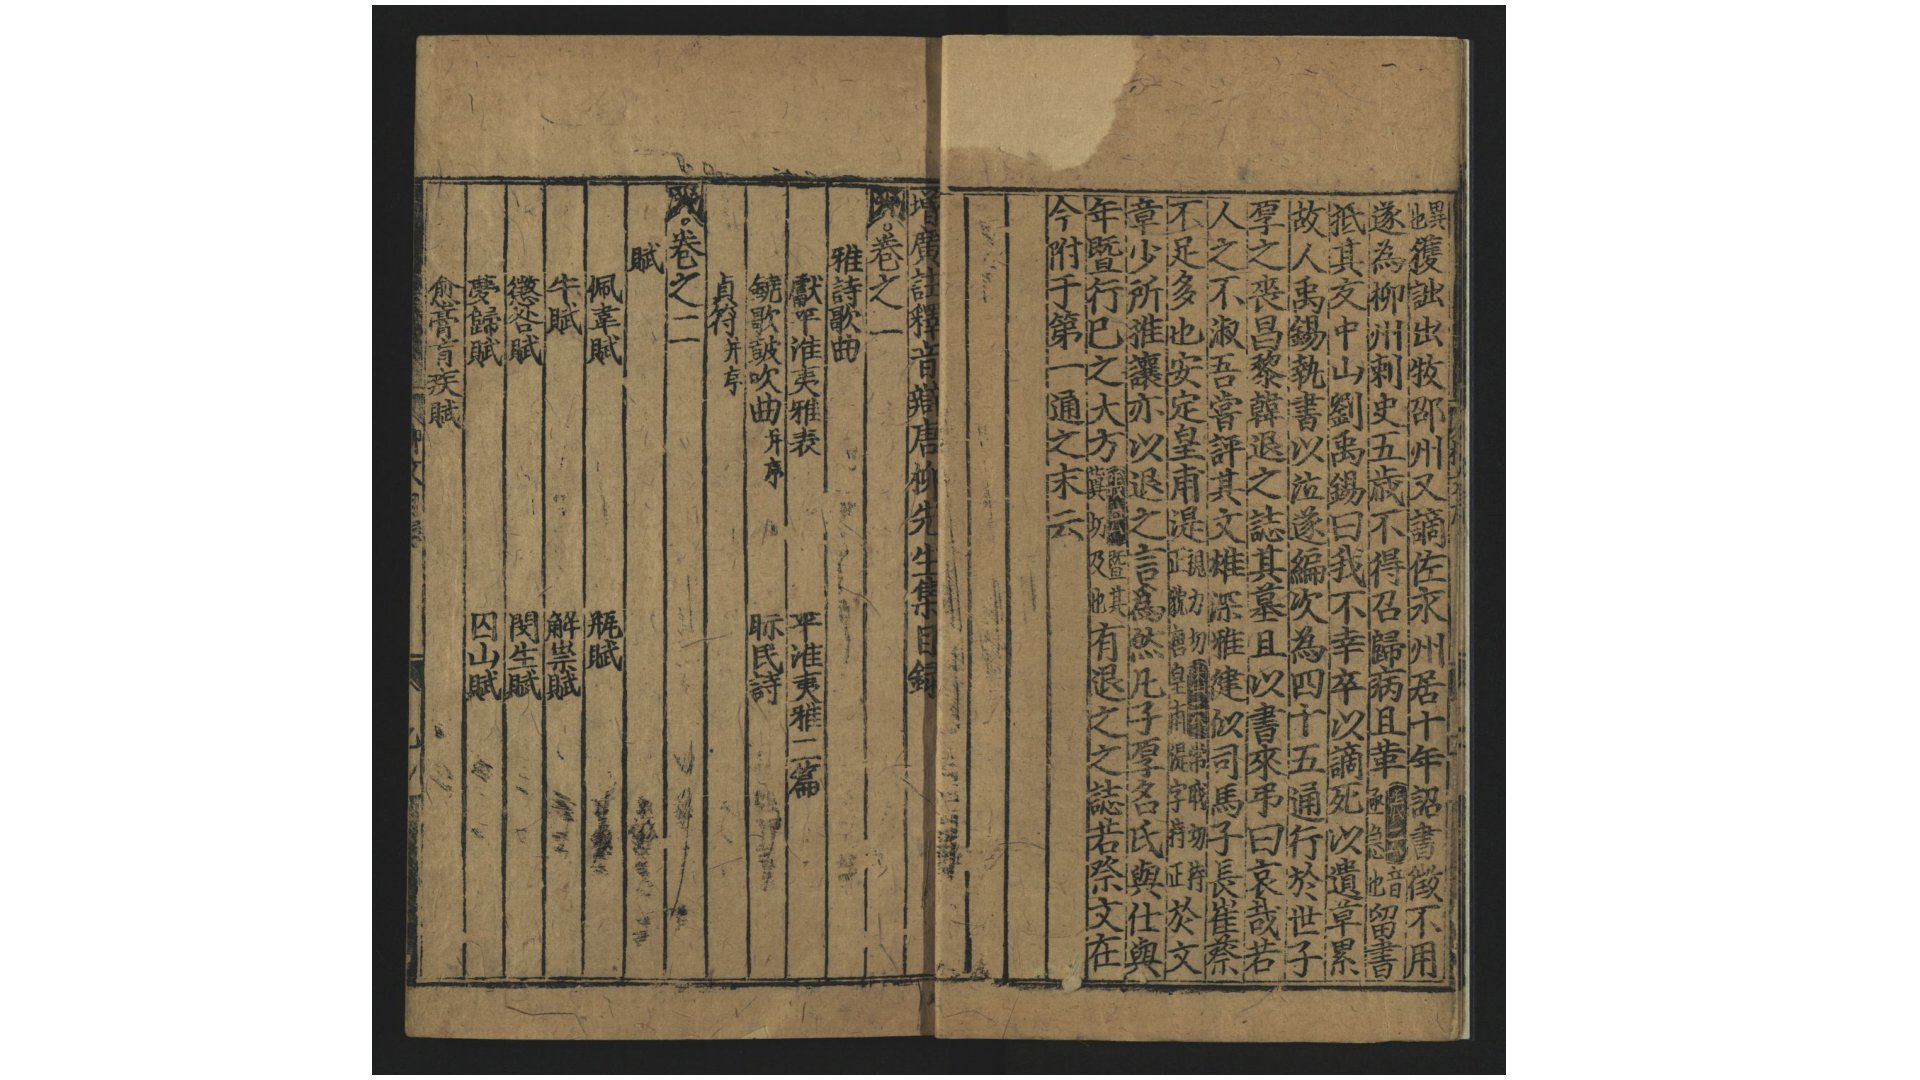 異也獲詘出牧邵州又謫佐永州居十年詔書徵不用
遂為柳州刺史五歲不得召歸病且革音亟急也留書
抵其友中山劉禹錫曰我不幸卒以謫死以遺草累
故人禹錫執書以泣遂編次為四十五通行於世子
厚之喪昌黎韓退之誌其墓且以書來弔曰哀哉若
人之不淑吾嘗評其文雄深雅健似司馬子長崔蔡
不足多也安定皇甫湜視力切常職切持正號唐皇甫湜字持正於文
章少所推讓亦以退之言為然凡子厚名氏與仕與
年暨行己之大方暨其冀切及也有退之之誌若祭文在
今附于第一通之末云
增廣註釋音辯唐柳先生集目録
卷之一
雅詩歌曲
獻平淮夷雅表 平淮夷雅二篇
鐃歌鼓吹曲并序 眎民詩
貞符并序
卷之二
賦
佩韋賦 瓶賦
牛賦 解祟賦
懲咎賦 閔生賦
夢歸賦 囚山賦
愈膏肓疾賦